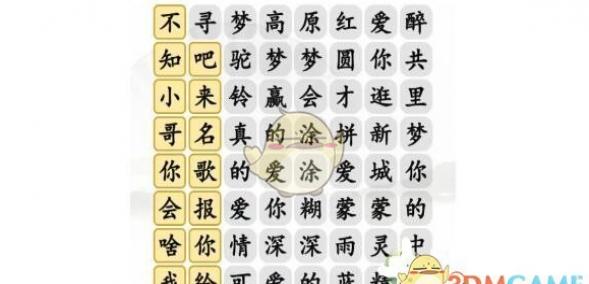 不寻梦高原红爱醉
知吧驼梦梦圆你共
小来铃赢会才逛里
哥名真的涂拼新梦
你歌的爱涂爱城你
会报爱你糊蒙蒙的
啥你情深深雨灵中
我给可爱的蓝精
3DMGAME